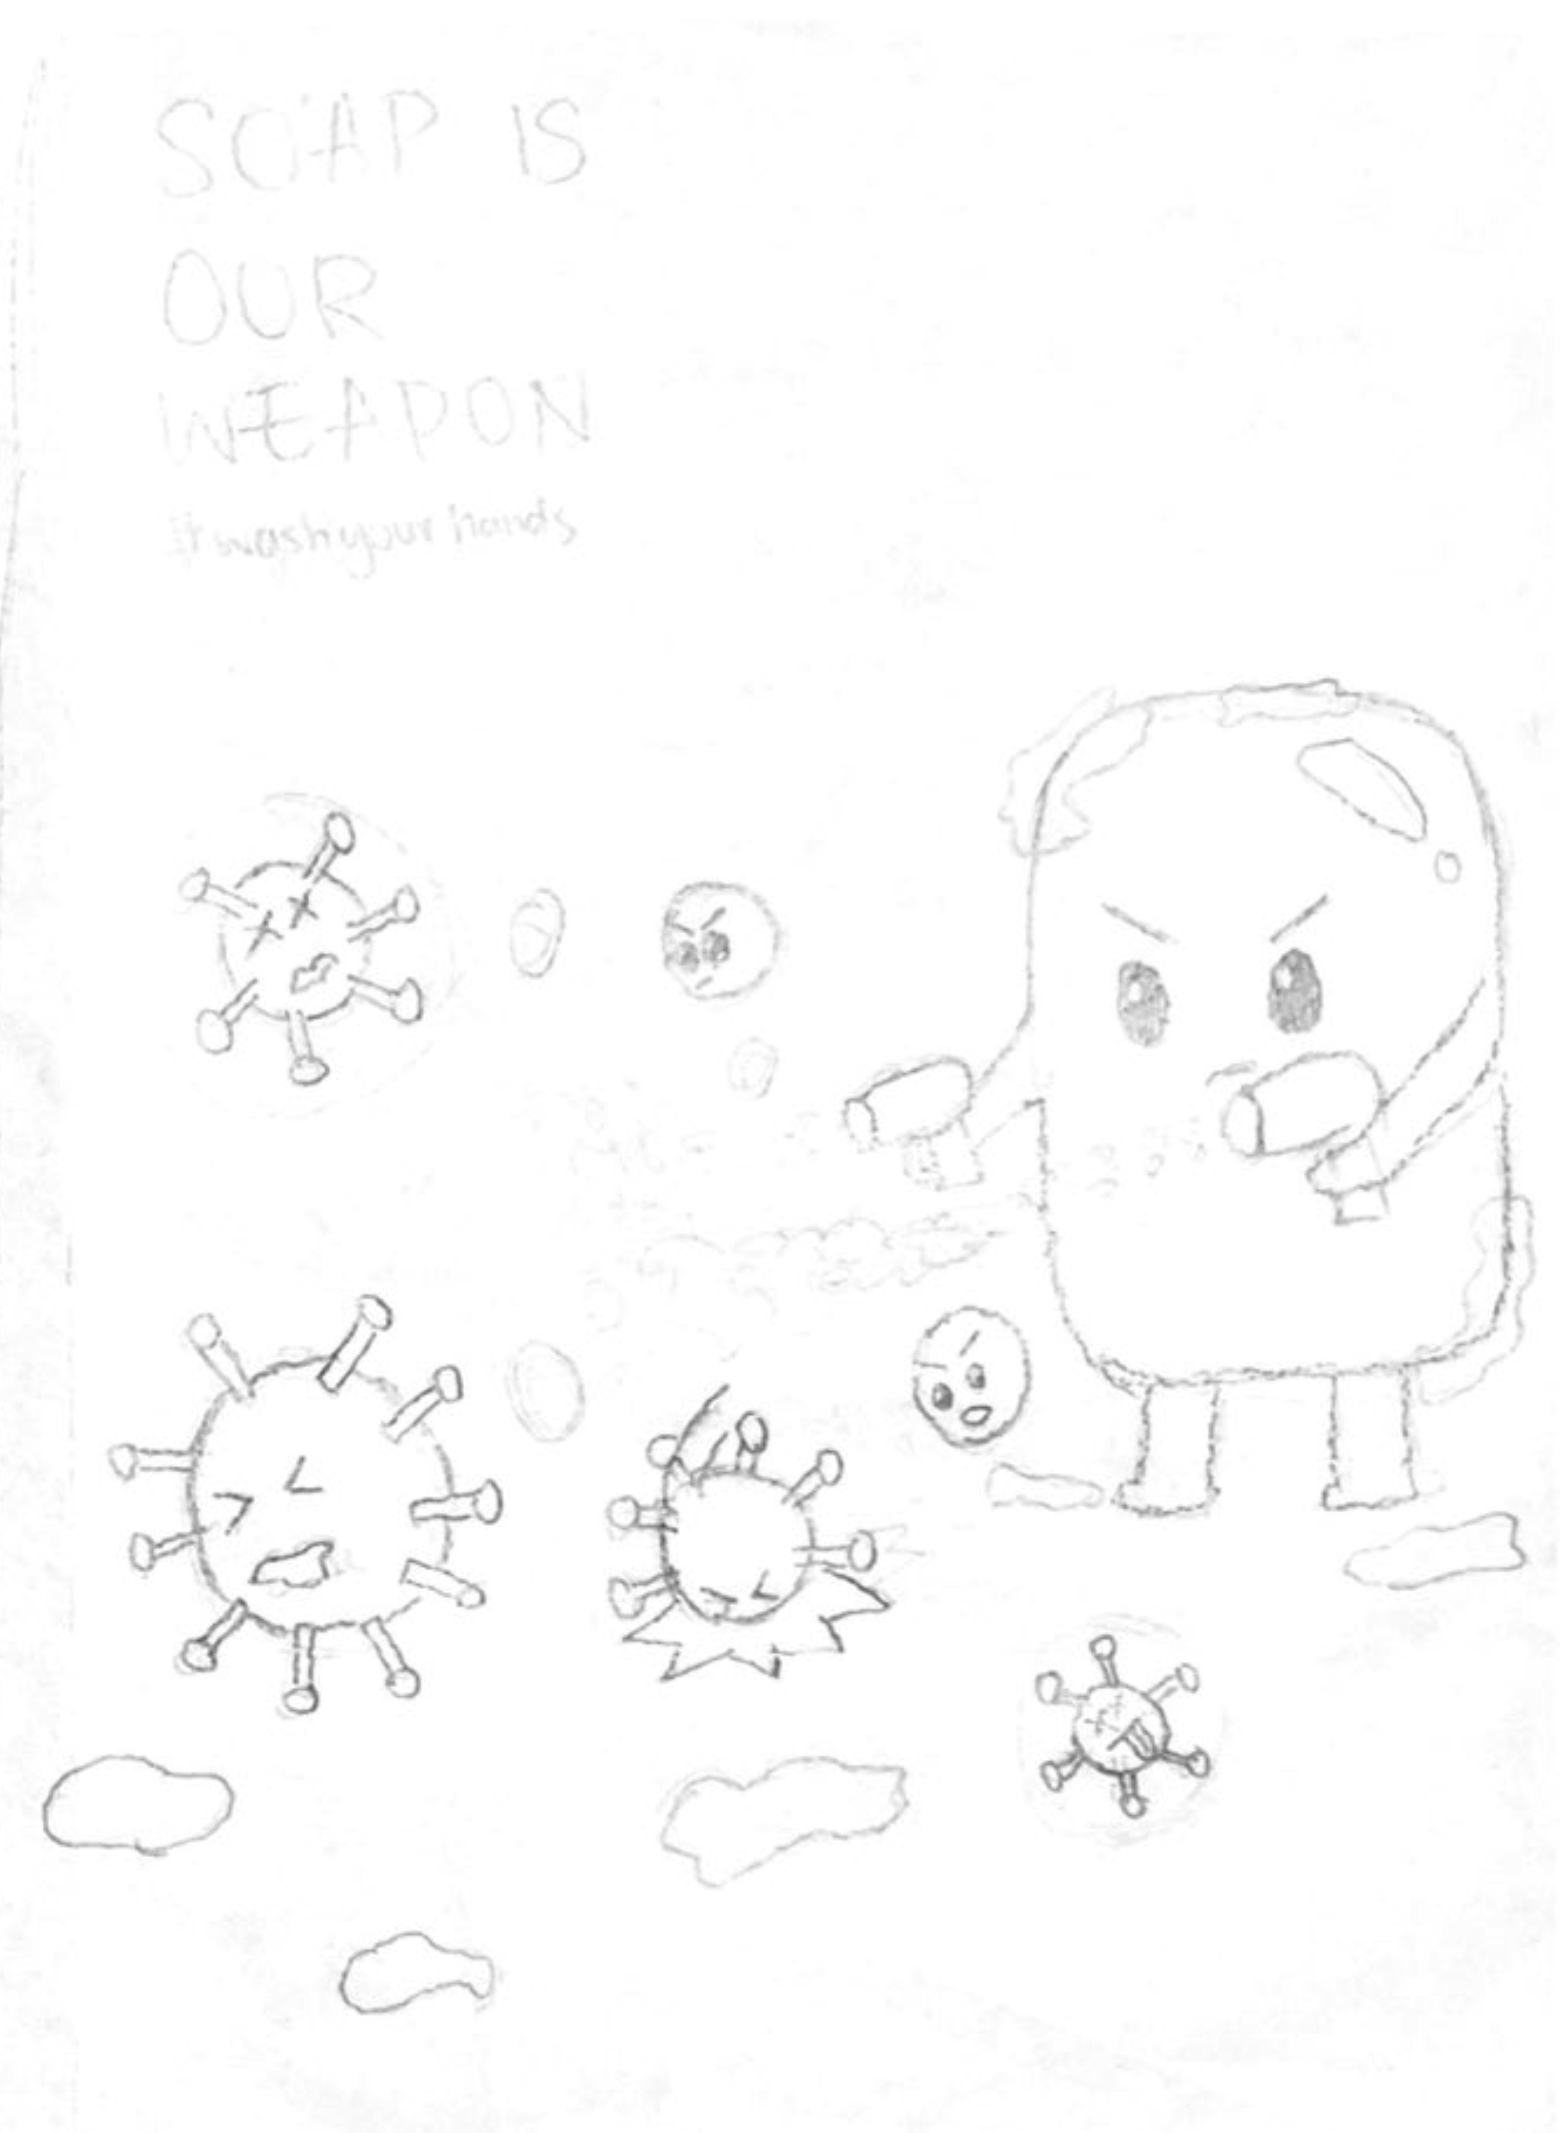 SOAP IS
OUR
WEAPON
#washyourhands